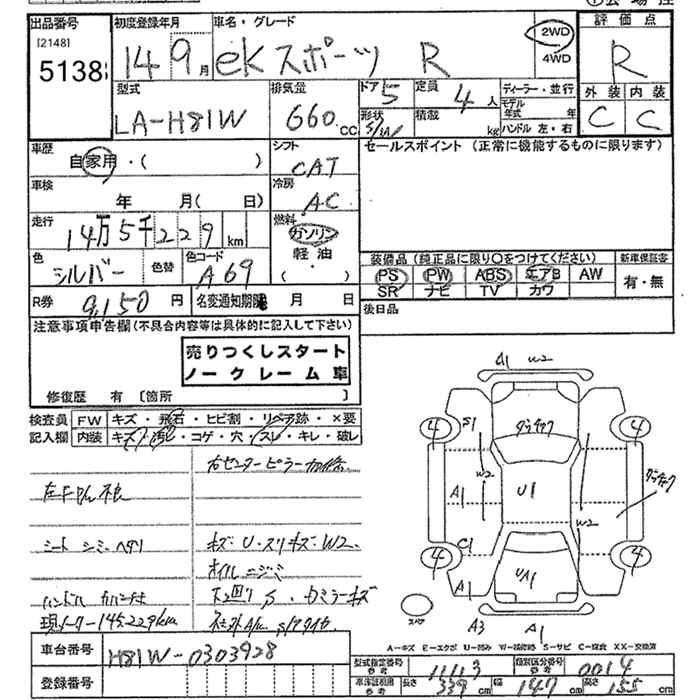 出品番号
[2148]
5138
初度登録年月
14 9月
車名・グレード
eKスポーツ R
2WD
4WD
評価点
R
外装 内装
C C
型式
LA-H81W
排気量
660 cc
ドア 5
形状 S/W
定員 4人
積載 kg
ディーラー・並行
モデル年式 年
ハンドル 左・右
車歴
自家用・( )
シフト
CAT
セールスポイント (正常に機能するものに限ります)
車検
年 月( 日)
冷房
AC
走行
14万5千229km
燃料
ガソリン
軽油・
( )
色
シルバー
色替
色コード
A69
装備品 (純正品に限り○をつけてください)
PS PW ABS エアB AW
SR ナビ TV カワ
新車保証書
有・無
R券 9,150円
名変通知期限 月 日
後日品
注意事項申告欄 (不具合内容等は具体的に記入して下さい)
売りつくしスタート
ノークレーム車
修復歴 有 [箇所 ]
検査員
記入欄
FW キズ・飛石・ヒビ割・リペア跡・×要
内装 キズ・汚れ・コゲ・穴・スレ・キレ・破レ
右センターピラー
シート シミ ヘタリ
キズ・U・スリキズ・W2
オイルニジミ
下廻りS
現メーター145,229km
A1 W2
S1
4 4
W2
A1
U1
W2
C1
4 4
A1
UA1
A3 A1
スペア
A=キズ E=エクボ U=凹み W=補修跡 S=サビ C=腐食 XX=交換済
車台番号
H81W-0303928
登録番号
型式指定番号 参考 11113
類別区分番号 参考 0014
車両証範囲 参考 長さ 339cm 幅 147cm 高さ 155cm